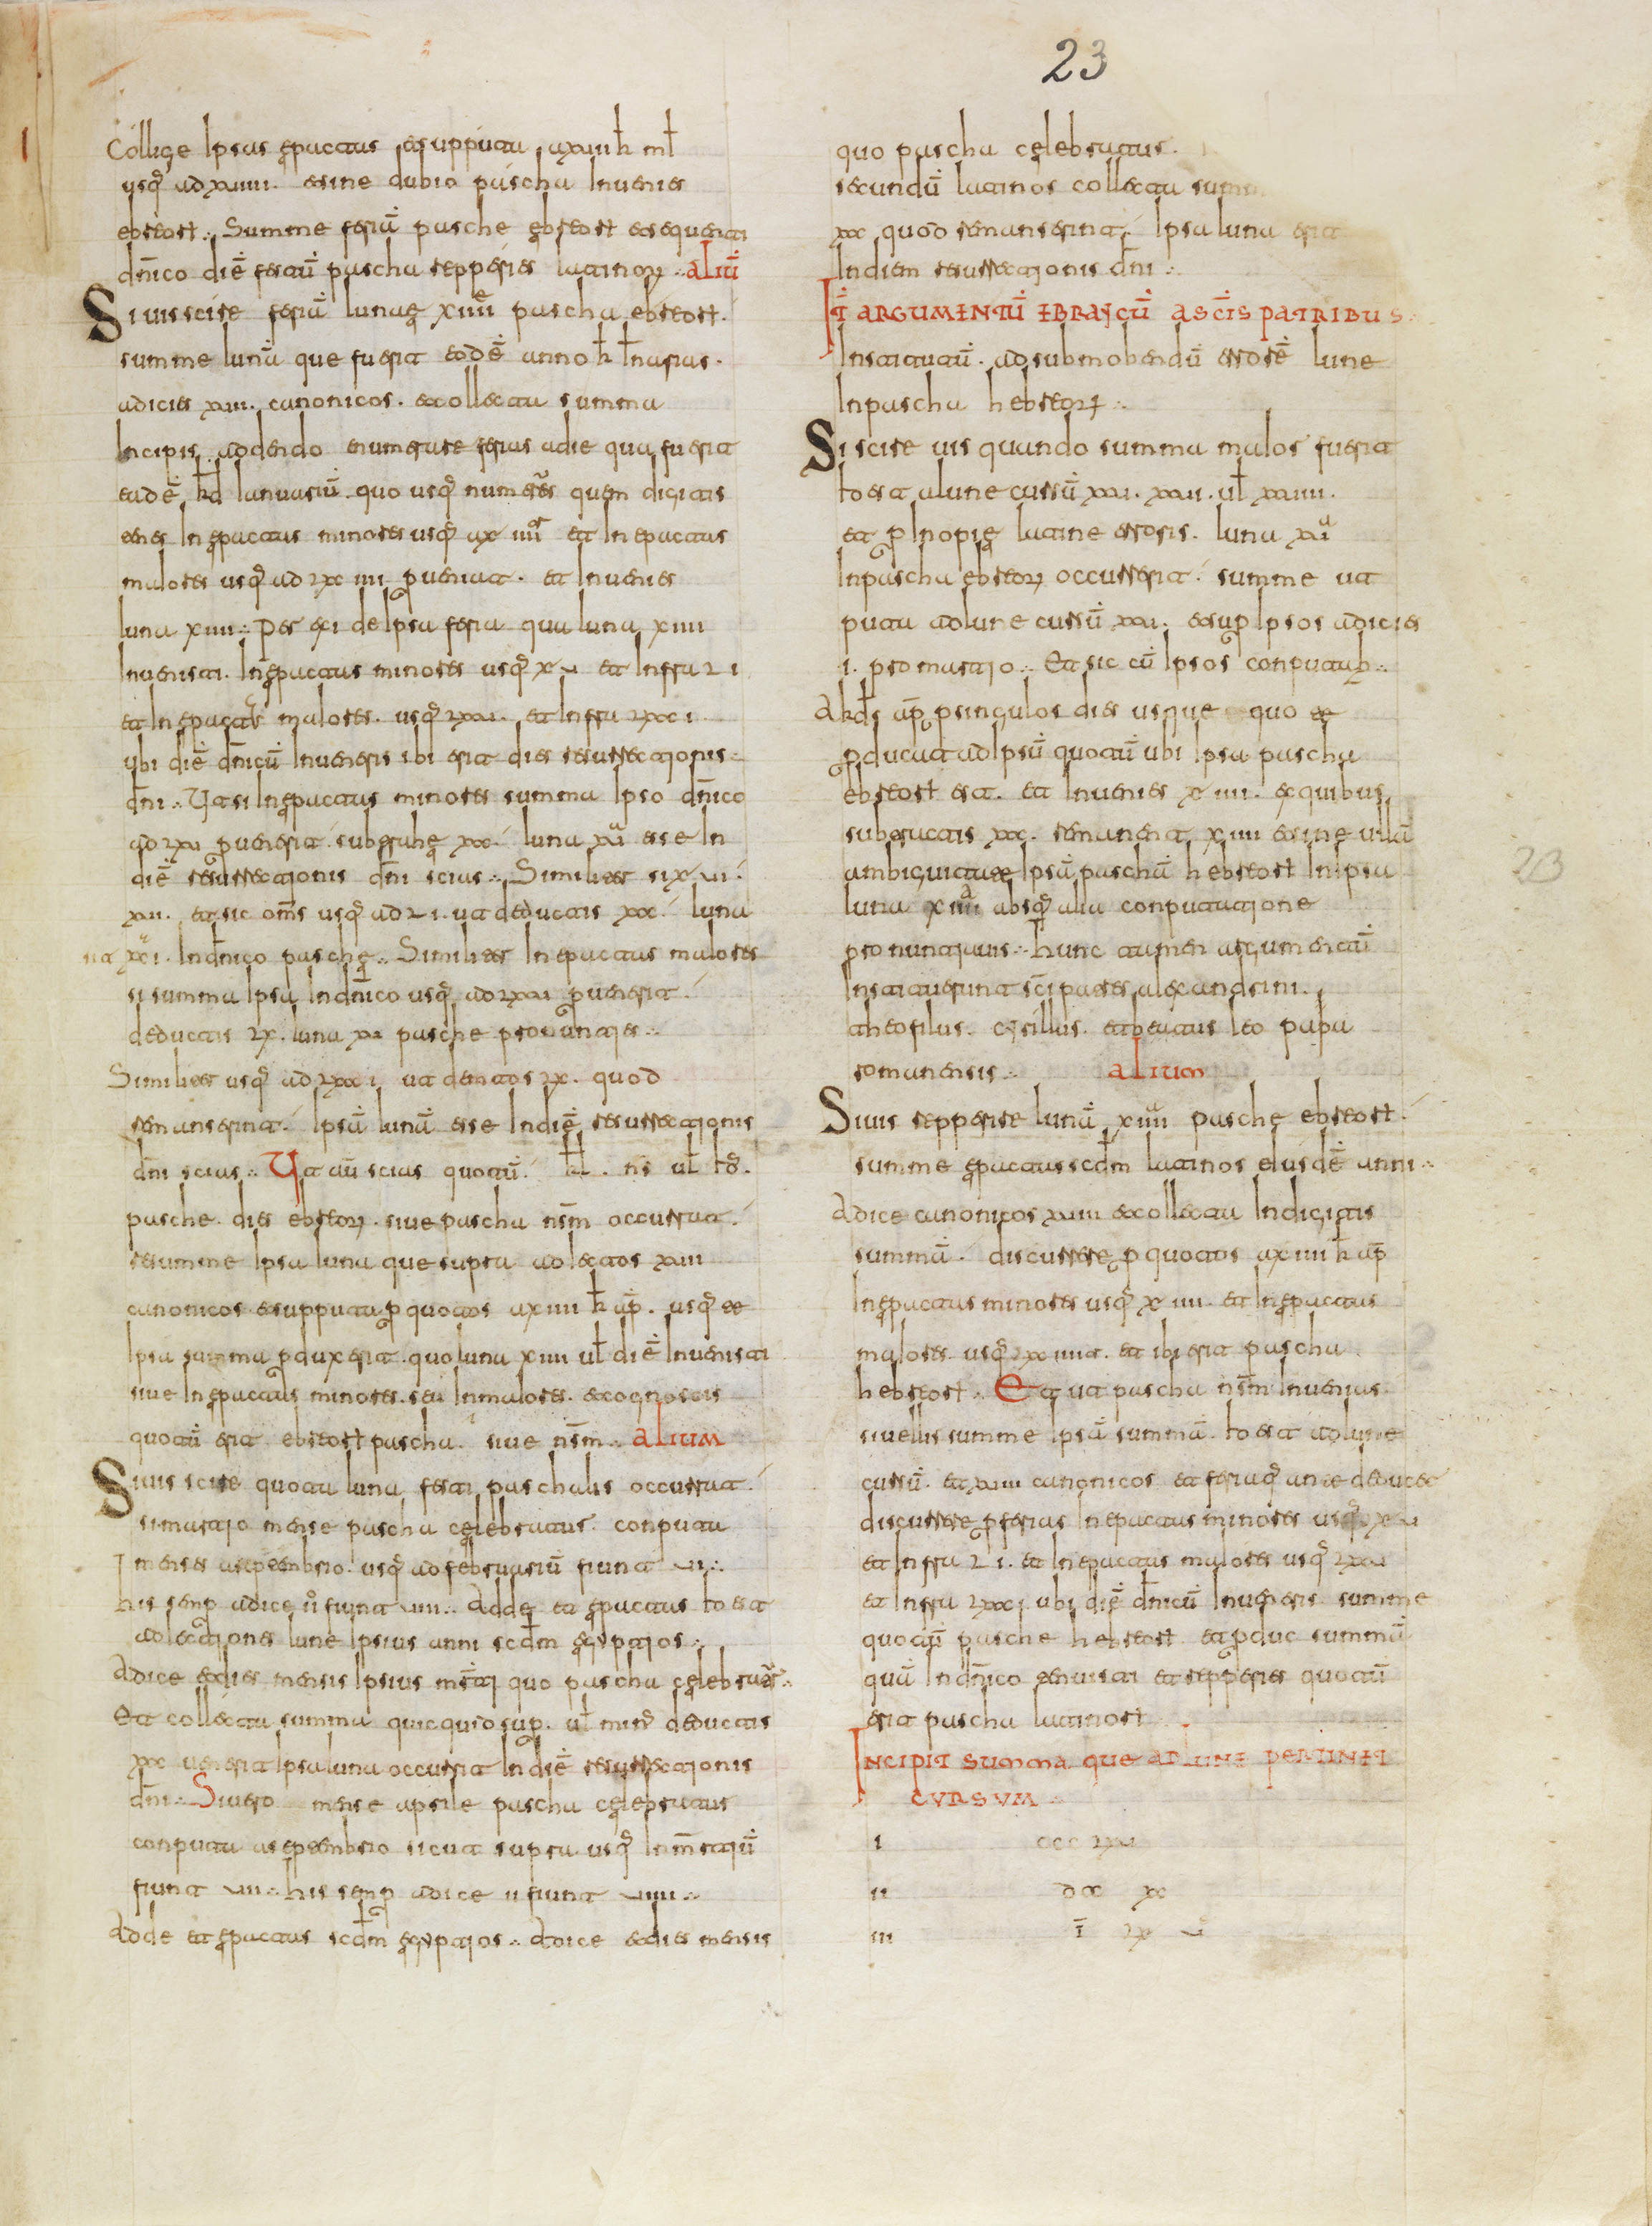 23
Collige ipsas epactas et supputa a xviii k̄ ml̄
usq; ad xiiii. et sine dubio pascha invenies
ebreor̄. Summe feriā pasche ebreor̄ et sequenti
dn̄ico diē festū pascha repperies latinor̄. aliū
Si vis scire feriā lunae xiiii pascha ebreor̄.
summe lunā que fuerit eodē anno k̄ ianr̄ias.
adicies xiii. canonicos. et collecta summa
incipis addendo enumerare ferias a die qua fuerit
eadē kl̄d ianuariū. quo usq; numerus quem digitis
tenes in epactas minores usq; ad xiiii et in epactas
maiores usq; ad lxiiii perveniat. et invenies
luna xiiii. Perexi de ipsa feria qua luna xiiii
invenisti. In epactas minores usq; xv et infra li
et in epactas maiores. usq; lxvi. et infra lxxi
ubi diē dn̄icū inveneris ibi erit dies resurrectionis
dn̄i. Ut si in epactas minores summa ipso dn̄ico
ad lxi pvenerit. subtrahe xxx. luna xxi esse in
diē resurrectionis dn̄i scias. Similiter si xvi.
xvii. et sic om̄s usq; ad li. ut deducais xxx. luna
xxi. In dn̄ico pasche. Similiter in epactas maiores
si summa ipsa in dn̄ico usq; ad lxxvi pvenerit.
deducais lx. luna xvi pasche pronuntjes.
Similiter usq; ad lxxxi ut demtos lx. quod
remanserint. ipsā lunā esse in diē resurrectionis
dn̄i scias. Ut aū scias quotū. kl̄. ns̄ ul̄ id̄.
pasche. dies ebreor̄. sive pascha ns̄m occurrat.
resumme ipsa luna que supra adiectos xiii
canonicos et supputa p quotos a xiiii k̄ ap̄. usq; ee
ipsa summa pduxerit. quo luna xiiii ul̄ diē invenisti
sive in epactas minores. seu in maiores. et cognoscis
quotū erit ebreor̄ pascha. sive ns̄m. alium
Si vis scire quota luna festi paschalis occurrat.
si martjo mense pascha celebratur. conputa
menses a septembrio. usq; ad februariū fiunt vi.
his semp adice ii fiunt viii. Adde et epactas id est
adiectjones lune ipsius anni scdm egyptjos.
Adice et dies mensis ipsius mr̄tj quo pascha celebratr̄.
Et collecta summa quicquid sup. ul̄ min; deducais
xxx venerit ipsa luna occurrit in diē resurrectjonis
dn̄i. Si vero mense aprile pascha celebratur
conputa a septembrio sicut supra usq; in mr̄tjū
fiunt vii. his semp adice ii fiunt viiii.
Adde et epactas scdm egyptjos. Adice et dies mensis
quo pascha celebratur.
secundū latinos collecta
xxx quod remanserint. Ipsa luna erit
in diem resurrectjonis dn̄i.
It̄ ARGUMENTŪ EBRAJCŪ ASC̄IS PATRIBUS
institutū. ad submobendū errorē lune
in pascha hebreor̄.
Si scire vis quando summa maior fuerit
id est a lune cursū xxi. xxii. ul̄ xxiiii.
et p inopie latine erroris. luna xvi
in pascha ebreor̄ occurrerit. summe ut
puta ad lune cursū xxi. et sup ipsos adicies
i. pro martjo. Et sic cū ipsos conputab.
A kl̄ds ap̄ p singulos dies usque quo ee
pducat ad ipsū quotū ubi ipsa pascha
ebreor̄ est. et invenies xiiii. ex quibus
subtractis xxx. remanent xiiii et sine ulla
ambiguitate ipsā paschā hebreor̄ in ipsa
luna xiiii absq; alia conputatjone
pronuntjavis. hunc tamen argumentū
instituerunt sc̄i patres alexandrini.
theofilus. cyrillus. et beatus leo papa
romanensis. alium
Si vis repperire lunā xiiii pasche ebreor̄.
summe epactas scdm latinos eiusdē anni.
Adice canonicos xviiii et collecta in digitis
summā. discurrere p quotos a xiiii k̄ ap̄
in epactas minores usq; xiiii. et in epactas
maiores usq; lxiiii. et ibi erit pascha
hebreor̄. Et ut pascha ns̄m invenias
si vellis summe ipsā summā. id est ad lune
cursū. et xviii canonicos et feriaq; ante deducet
discurrere p ferias in epactas minores usq; xv
et infra li. et in epactas maiores usq; lxv
et infra lxxxi ubi diē dn̄icū inveneris summe
quotū pasche hebreor̄ et pduc summā
quā in dn̄ico tenuisti et repperies quotū
erit pascha latinor̄
INCIPIT SUMMA QUE AD LUNE PERTINET
CURSUM
i ccc lxv
ii dcc xxx
iii ī lx v